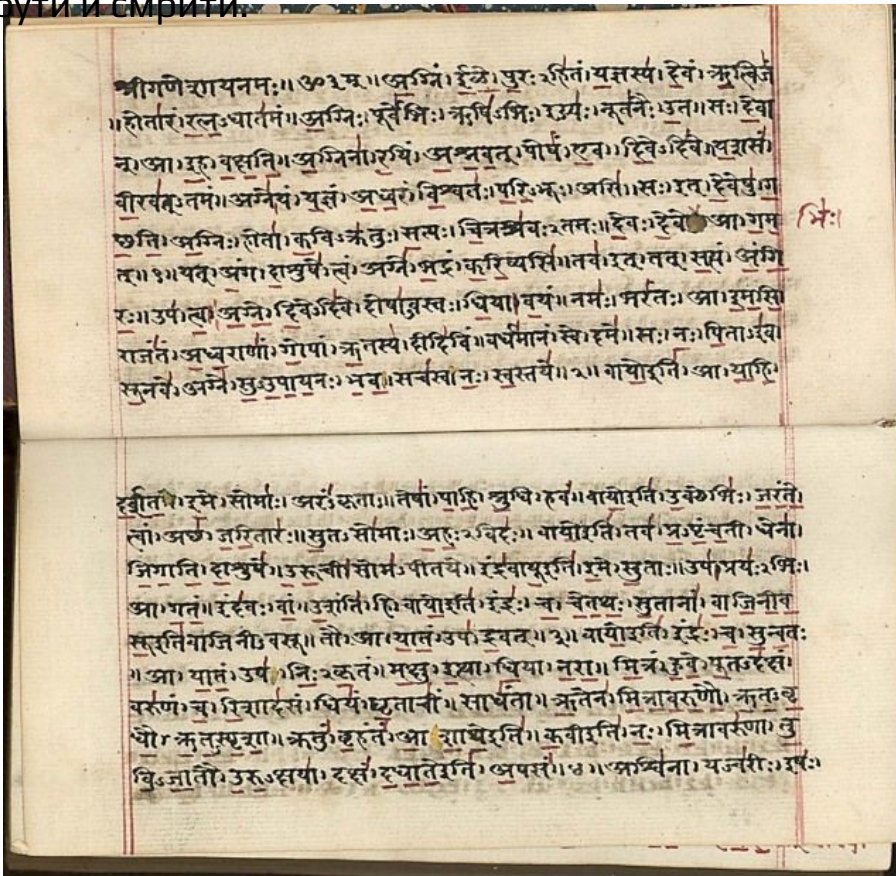 рути и смрити.
श्रीगणेशायनमः॥ ॐ३म्॥ अग्निं। ईळे। पुरःऽहितं। यज्ञस्य। देवं। ऋत्विजं
॥होतारं। रत्नऽधातमं॥ अग्निः। पूर्वेभिः। ऋषिऽभिः। ईड्यः। नूतनैः। उत॥ सः। देवा
न्। आ। इह। वक्षति॥ अग्निना। रयिं। अश्नवत्। पोषं। एव। दिवेऽदिवे॥ यशसं
वीरवत्ऽतमं॥ अग्नेयं। यज्ञं। अध्वरं। विश्वतः। परिऽभूः। असि॥ सः। इत्। देवेषु। ग
छति। अग्निः। होता। कविऽक्रतुः। सत्यः। चित्रश्रवःऽतमः॥ देवः। देवे आ। गम
त्॥१॥ यत्। अंग। दाशुषे। त्वं। अग्ने। भद्रं। करिष्यसि॥ तव। इत्। तत्। सत्यं। अंगि
भिः।
रः॥ उप। त्वा। अग्ने। दिवेऽदिवे। दोषाऽवस्तः। धिया। वयं॥ नमः। भरंतः। आ। इमसि॥
राजंतं। अध्वराणां। गोपां। ऋतस्य। दीदिविं॥ वर्धमानं। स्वे। दमे॥ सः। नः। पिताऽइव।
सूनवे। अग्ने। सुऽउपायनः। भव॥ सचस्व। नः। स्वस्तये॥२॥ वायोइति। आ। याहि।
दर्शत। इमे। सोमाः। अरंऽकृताः॥ तेषां। पाहि। श्रुधि। हवं॥ वायोइति। उक्थेभिः। जरंते।
त्वां। अछ। जरितारः॥ सुतऽसोमाः। अहःऽविदः॥ वायोइति। तव। प्रऽपृंचती। धेना।
जिगाति। दाशुषे॥ उरूची। सोमऽपीतये॥ इंद्रवायूइति। इमे। सुताः॥ उप। प्रयःऽभिः।
आ। गतं॥ इंदवः। वां। उशंति। हि॥ वायोइति। इंद्रः। च। चेतथः। सुतानां। वाजिनीव
सूइतिवाजिनीऽवसू॥ तौ। आ। यातं। उप। द्रवत्॥३॥ वायोइति। इंद्रः। च। सुन्वतः
॥आ। यातं। उप। निःऽकृतं॥ मक्षु। इत्था। धिया। नरा॥ मित्रं। हुवे। पूतऽदक्षं।
वरुणं। च। रिशादसं॥ धियं। घृताचीं। साधंता॥ ऋतेन। मित्रावरुणौ। ऋतऽवृ
धौ। ऋतऽस्पृशा॥ क्रतुं। बृहंतं। आशाथेइति॥ कवीइति। नः। मित्रावरुणा। तु
विऽजातौ। उरुऽक्षया। दक्षं। दधातेइति। अपसं॥४॥ अश्विना। यज्वरीः। इषः।